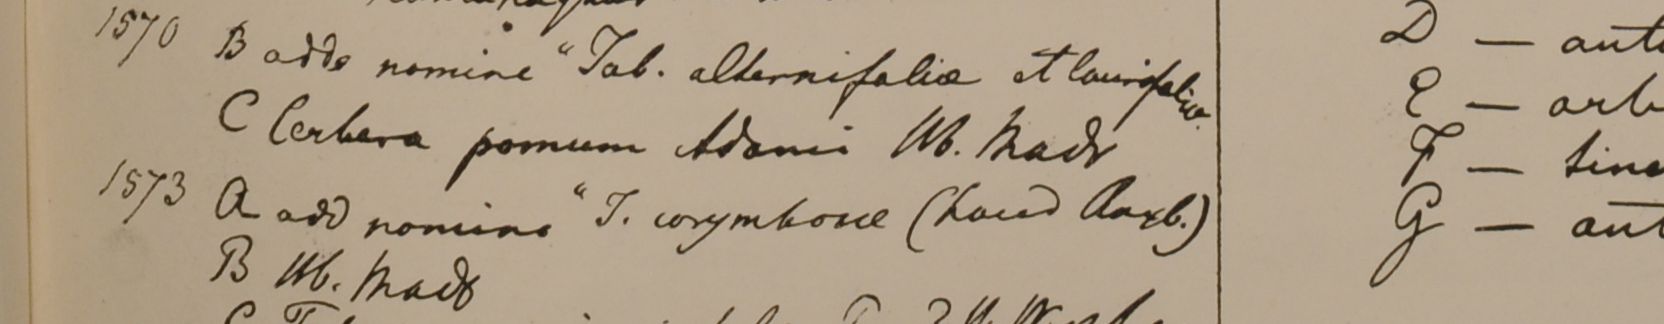 1570 B adde nomine "Tab. alternifoliæ et laurifoliæ
C Cerbera pomum Adami Hb. Madr
1573 A add nomine "T. corymbosæ (haud Roxb.)
B Hb. Madr
D — aut
E — arb
F — sine
G — aut